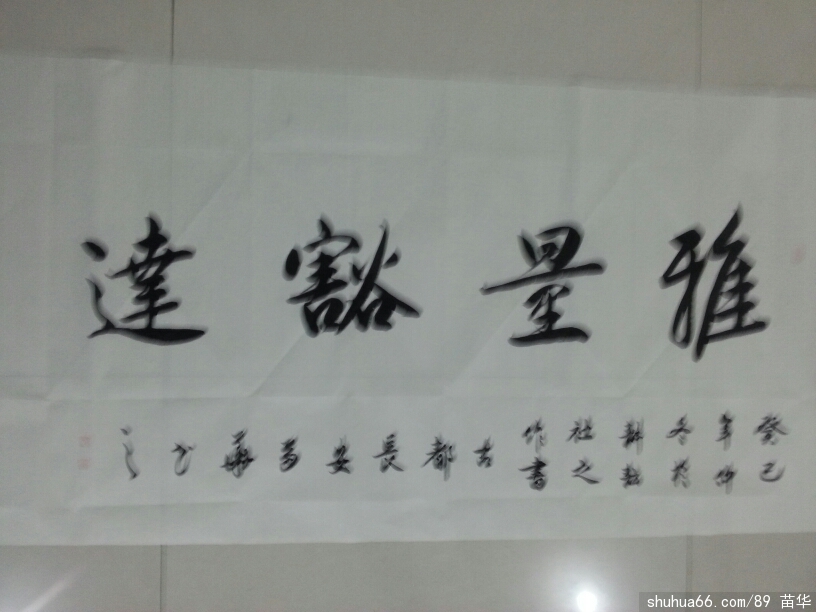 雅量豁達
癸巳
年仲
冬於
社之
作書
古都長安苗華書之
shuhua66.com/89 苗华